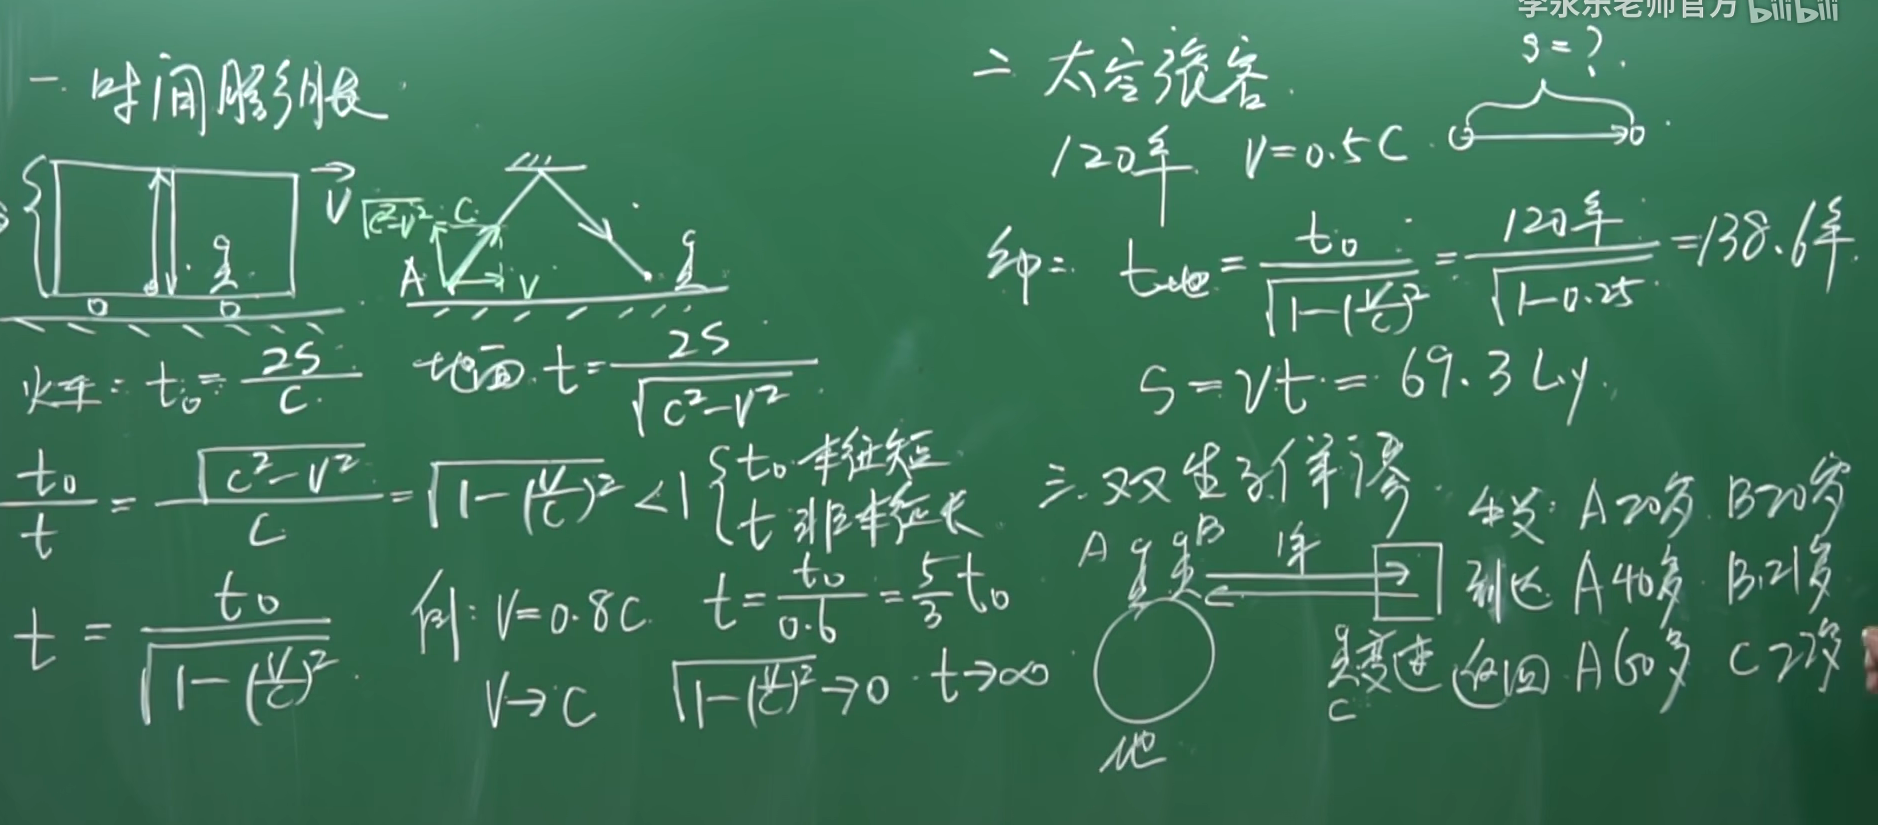 李永乐老师官方 bilibili
一. 时间膨胀
V
√(c²-v²) C
A V
火车: t₀ = 2S/C
地面 t = 2S/√(c²-v²)
t₀/t = √(c²-v²)/C = √(1-(v/c)²) < 1 { t₀ 本征短
t 非本征长
t = t₀/√(1-(v/c)²)
例: V=0.8C t = t₀/0.6 = 5/3 t₀
V→C √(1-(v/c)²)→0 t→∞
二 太空旅客
S=?
120年 V=0.5C
t地 = t₀/√(1-(v/c)²) = 120年/√(1-0.25) = 138.6年
S = vt = 69.3 L.y.
三. 双生子佯谬
A B 1年
出发: A 20岁 B 20岁
到达 A 40岁 B 21岁
变速 返回 A 60岁 C 22岁
C
地